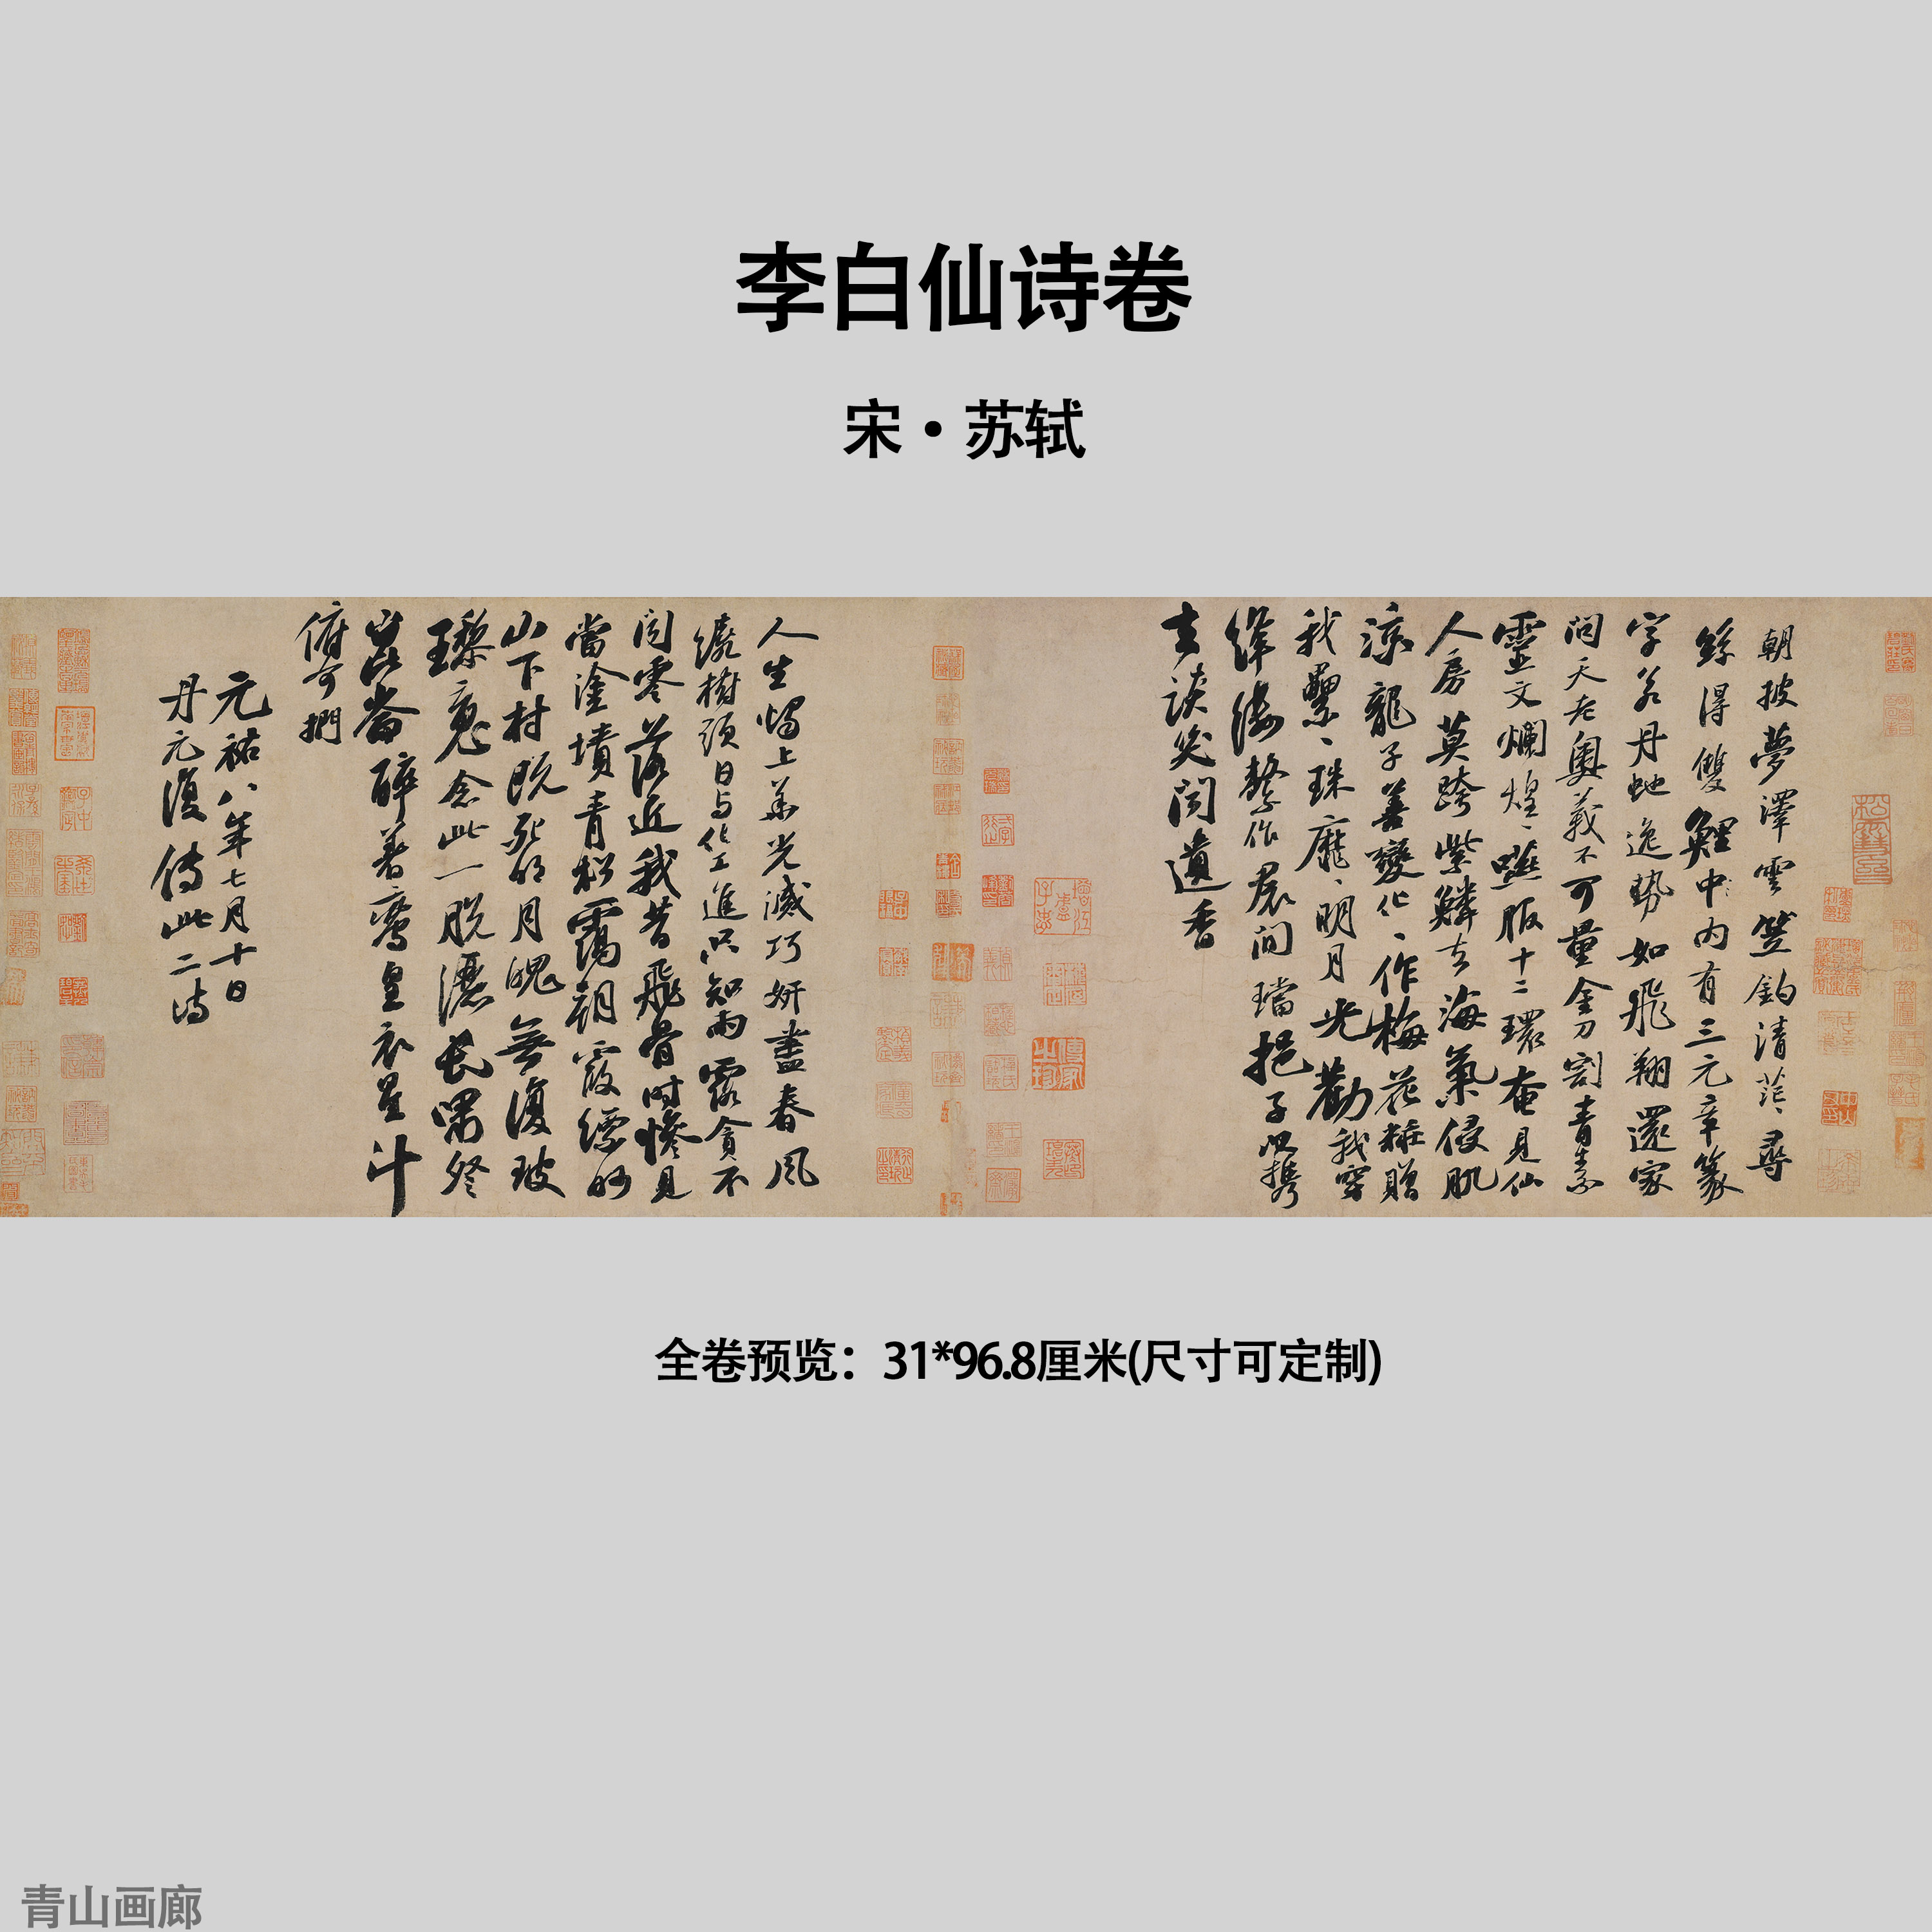 李白仙诗卷
宋·苏轼
朝披夢澤雲笠釣清茫〻尋
絲得雙鯉中内有三元章篆
字若丹虵逸勢如飛翔還家
問天老奥義不可量金刀割青素
靈文爛煌〻嚥服十二環奄見仙
人房莫跨紫鱗去海氣侵肌
涼龍子善變化〻作梅花粧贈
我纍〻珠靡〻明月光勸我穿
絳縷繫作裙間璫挹子以携
去談笑聞遺香
人生燭上華光滅巧妍盡春風
繞樹頭日与化工進只知雨露貪不
聞零落近我昔飛骨時惨見
當塗墳青松靄朝霞縹眇
山下村既死明月魄無復玻
瓈魂念此一脱灑長嘯登
崑崙醉著鸞皇衣星斗
俯可捫
元祐八年七月十日
丹元復傳此二詩
全卷预览：31*96.8厘米(尺寸可定制)
青山画廊